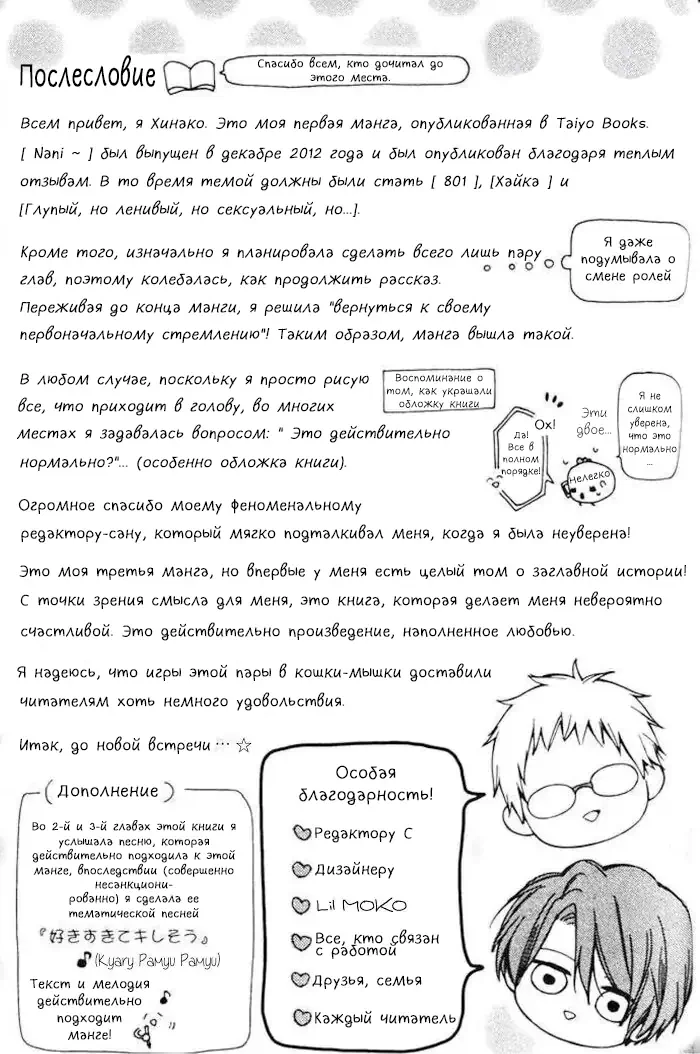 Послесловие
Спасибо всем, кто дочитал до
этого места.
Всем привет, я Хинако. Это моя первая манга, опубликованная в Taiyo Books.
[ Nani ~ ] был выпущен в декабре 2012 года и был опубликован благодаря теплым
отзывам. В то время темой должны были стать [ 801 ], [Хайка ] и
[Глупый, но ленивый, но сексуальный, но...].
Кроме того, изначально я планировала сделать всего лишь пару
глав, поэтому колебалась, как продолжить рассказ.
Переживая до конца манги, я решила "вернуться к своему
первоначальному стремлению"! Таким образом, манга вышла такой.
Я даже
подумывала о
смене ролей
В любом случае, поскольку я просто рисую
все, что приходит в голову, во многих
местах я задавалась вопросом: " Это действительно
нормально?"... (особенно обложка книги).
Воспоминание о
том, как украшали
обложку книги
Да!
Все в
полном
порядке!
Ох!
нелегко
Эти
двое...
Я не
слишком
уверена,
что это
нормально
...
Огромное спасибо моему феноменальному
редактору-сану, который мягко подталкивал меня, когда я была неуверена!
Это моя третья манга, но впервые у меня есть целый том о заглавной истории!
С точки зрения смысла для меня, это книга, которая делает меня невероятно
счастливой. Это действительно произведение, наполненное любовью.
Я надеюсь, что игры этой пары в кошки-мышки доставили
читателям хоть немного удовольствия.
Итак, до новой встречи ... ☆
Дополнение
Во 2-й и 3-й главах этой книги я
услышала песню, которая
действительно подходила к этой
манге, впоследствии (совершенно
несанкциони-
рованно) я сделала ее
тематической песней
『好きすきてキしそう』
(Kyary Pamyu Pamyu)
Текст и мелодия
действительно
подходит
манге!
Особая
благодарность!
Редактору С
Дизайнеру
Lil MOKO
Все, кто связан
с работой
Друзья, семья
Каждый читатель